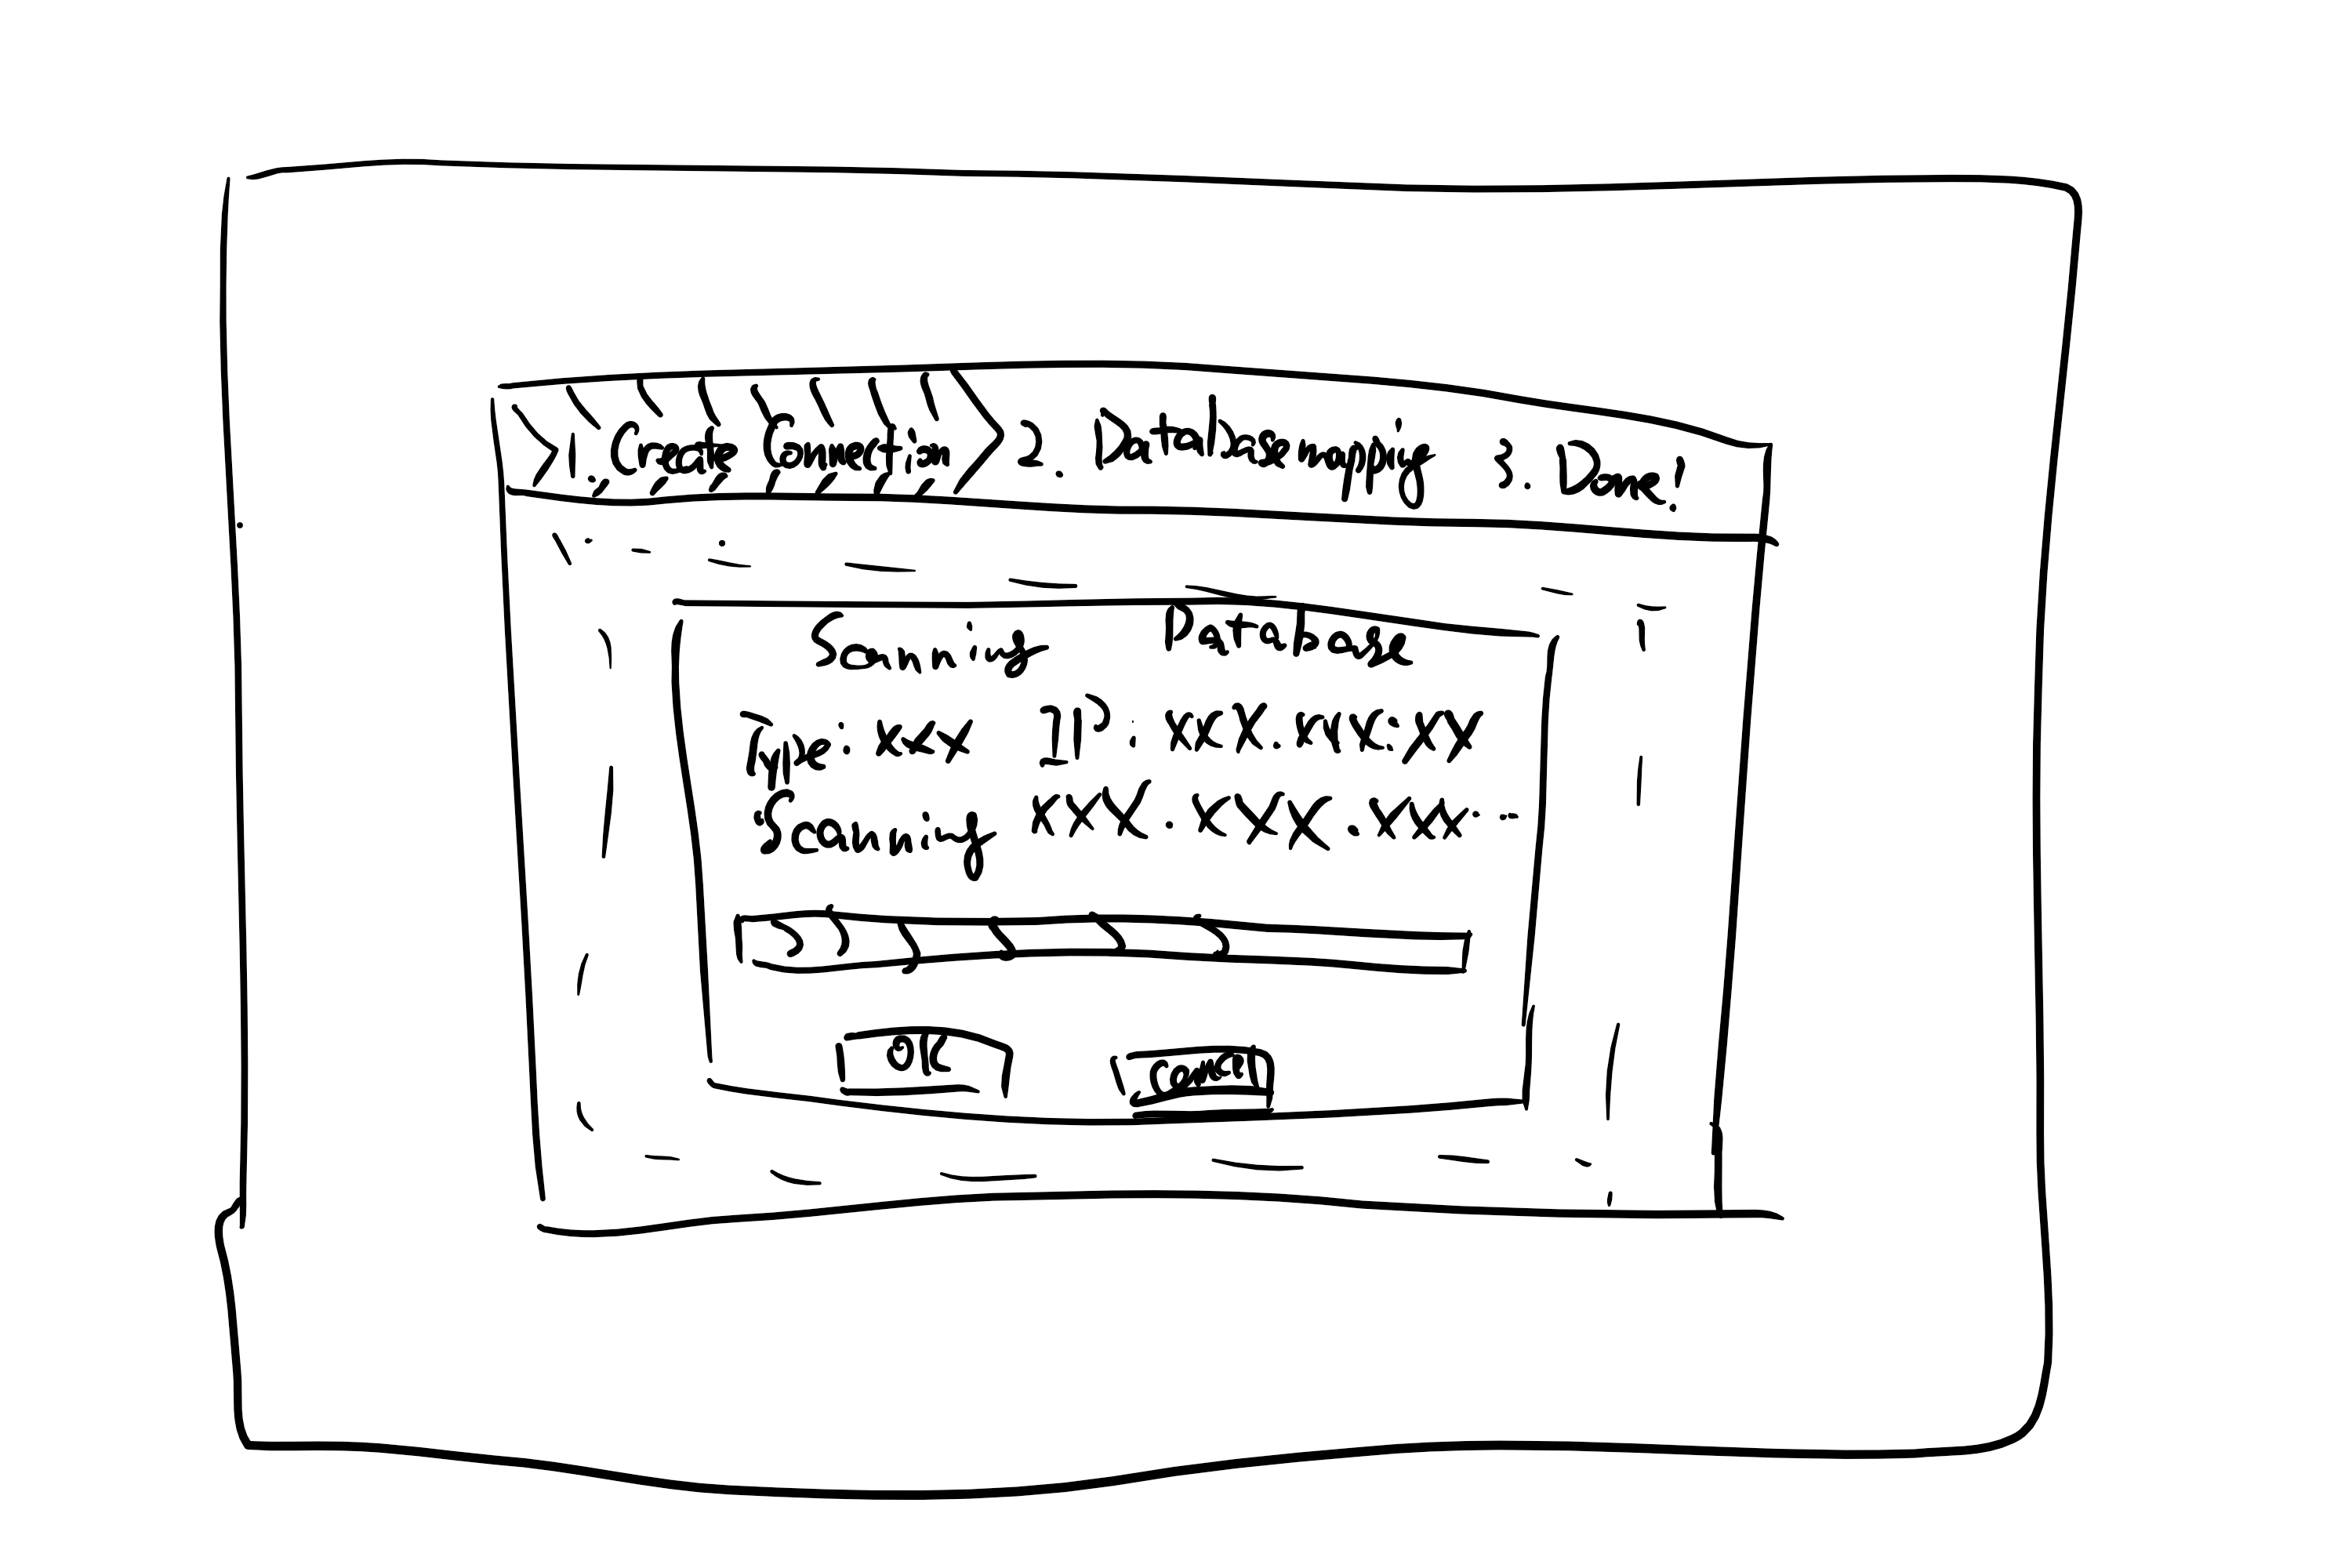 1. Create Connection 2. Database mapping 3. Done!
Scanning Database
Type: xxx IP: xxx.xxx.xx
Scanning xxx.xxx.xxx...
OK Cancel